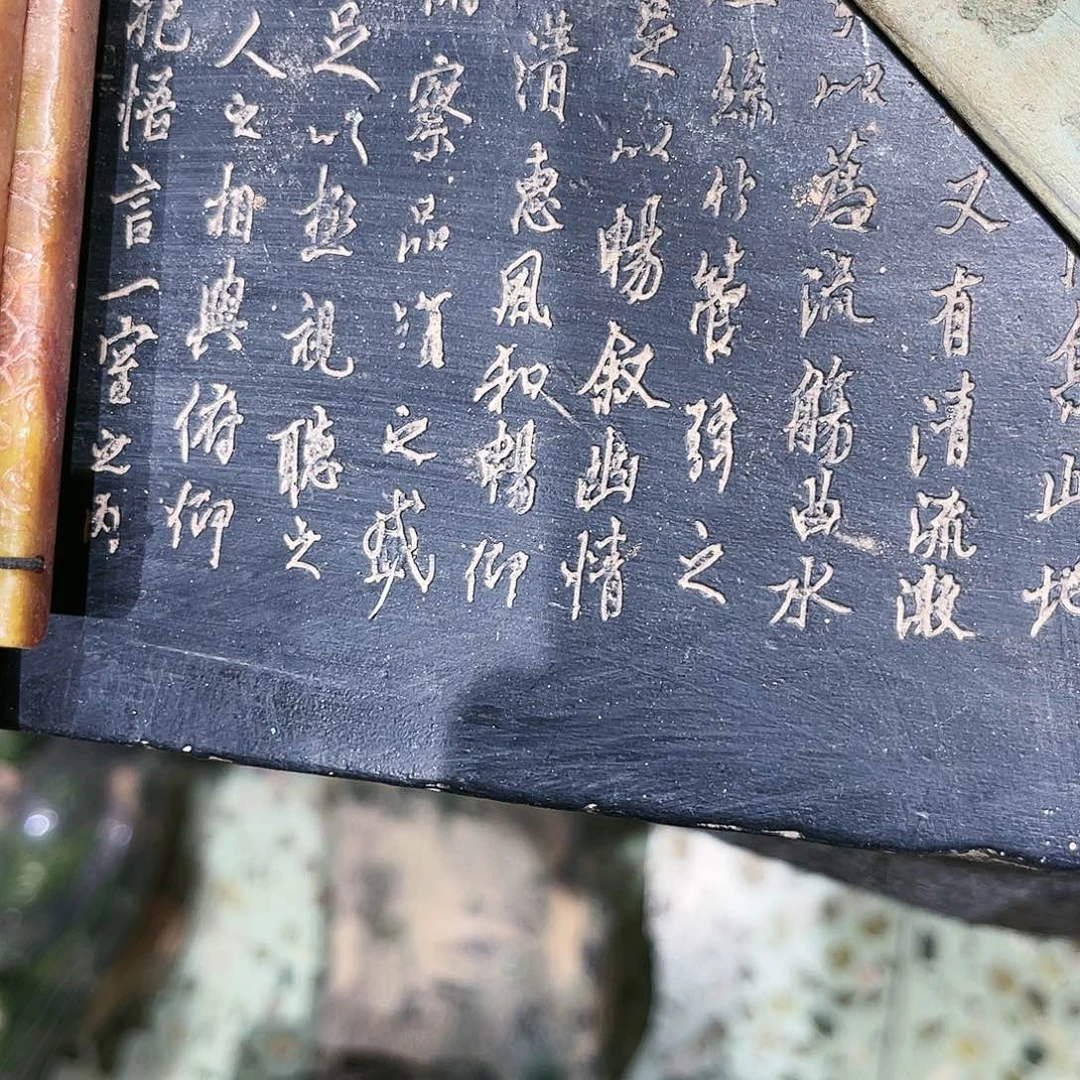 集此地
又有清流激
以為流觴曲水
絲竹管弦之
足以暢敘幽情
清惠風和暢仰
察品類之盛
足以極視聽之
人之相與俯仰
抱悟言一室之內